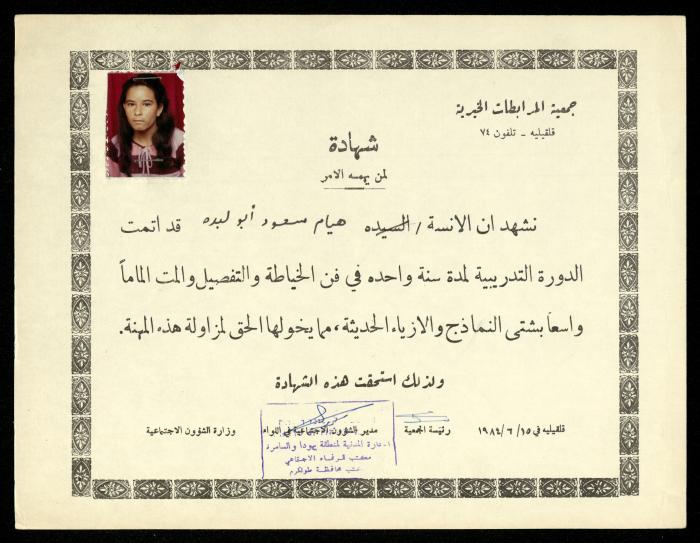 جمعية المرابطات الخيرية
قلقيليه - تلفون ٧٤
شهادة
لمن يهمه الامر
نشهد ان الانسة / السيده هيام مسعود أبو لبده قد اتمت
الدورة التدريبية لمدة سنة واحده في فن الخياطة والتفصيل والمت الماماً
واسعاً بشتى النماذج والازياء الحديثة، مما يخولها الحق لمزاولة هذه المهنة.
ولذلك استحقت هذه الشهادة
قلقيليه في ١٥ / ٦ / ١٩٨٤ رئيسة الجمعية مدير الشؤون الاجتماعية في اللواء وزارة الشؤون الاجتماعية
الادارة المدنية لمنطقة يهودا والسامرة
مكتب الرفاه الاجتماعي
محافظة طولكرم